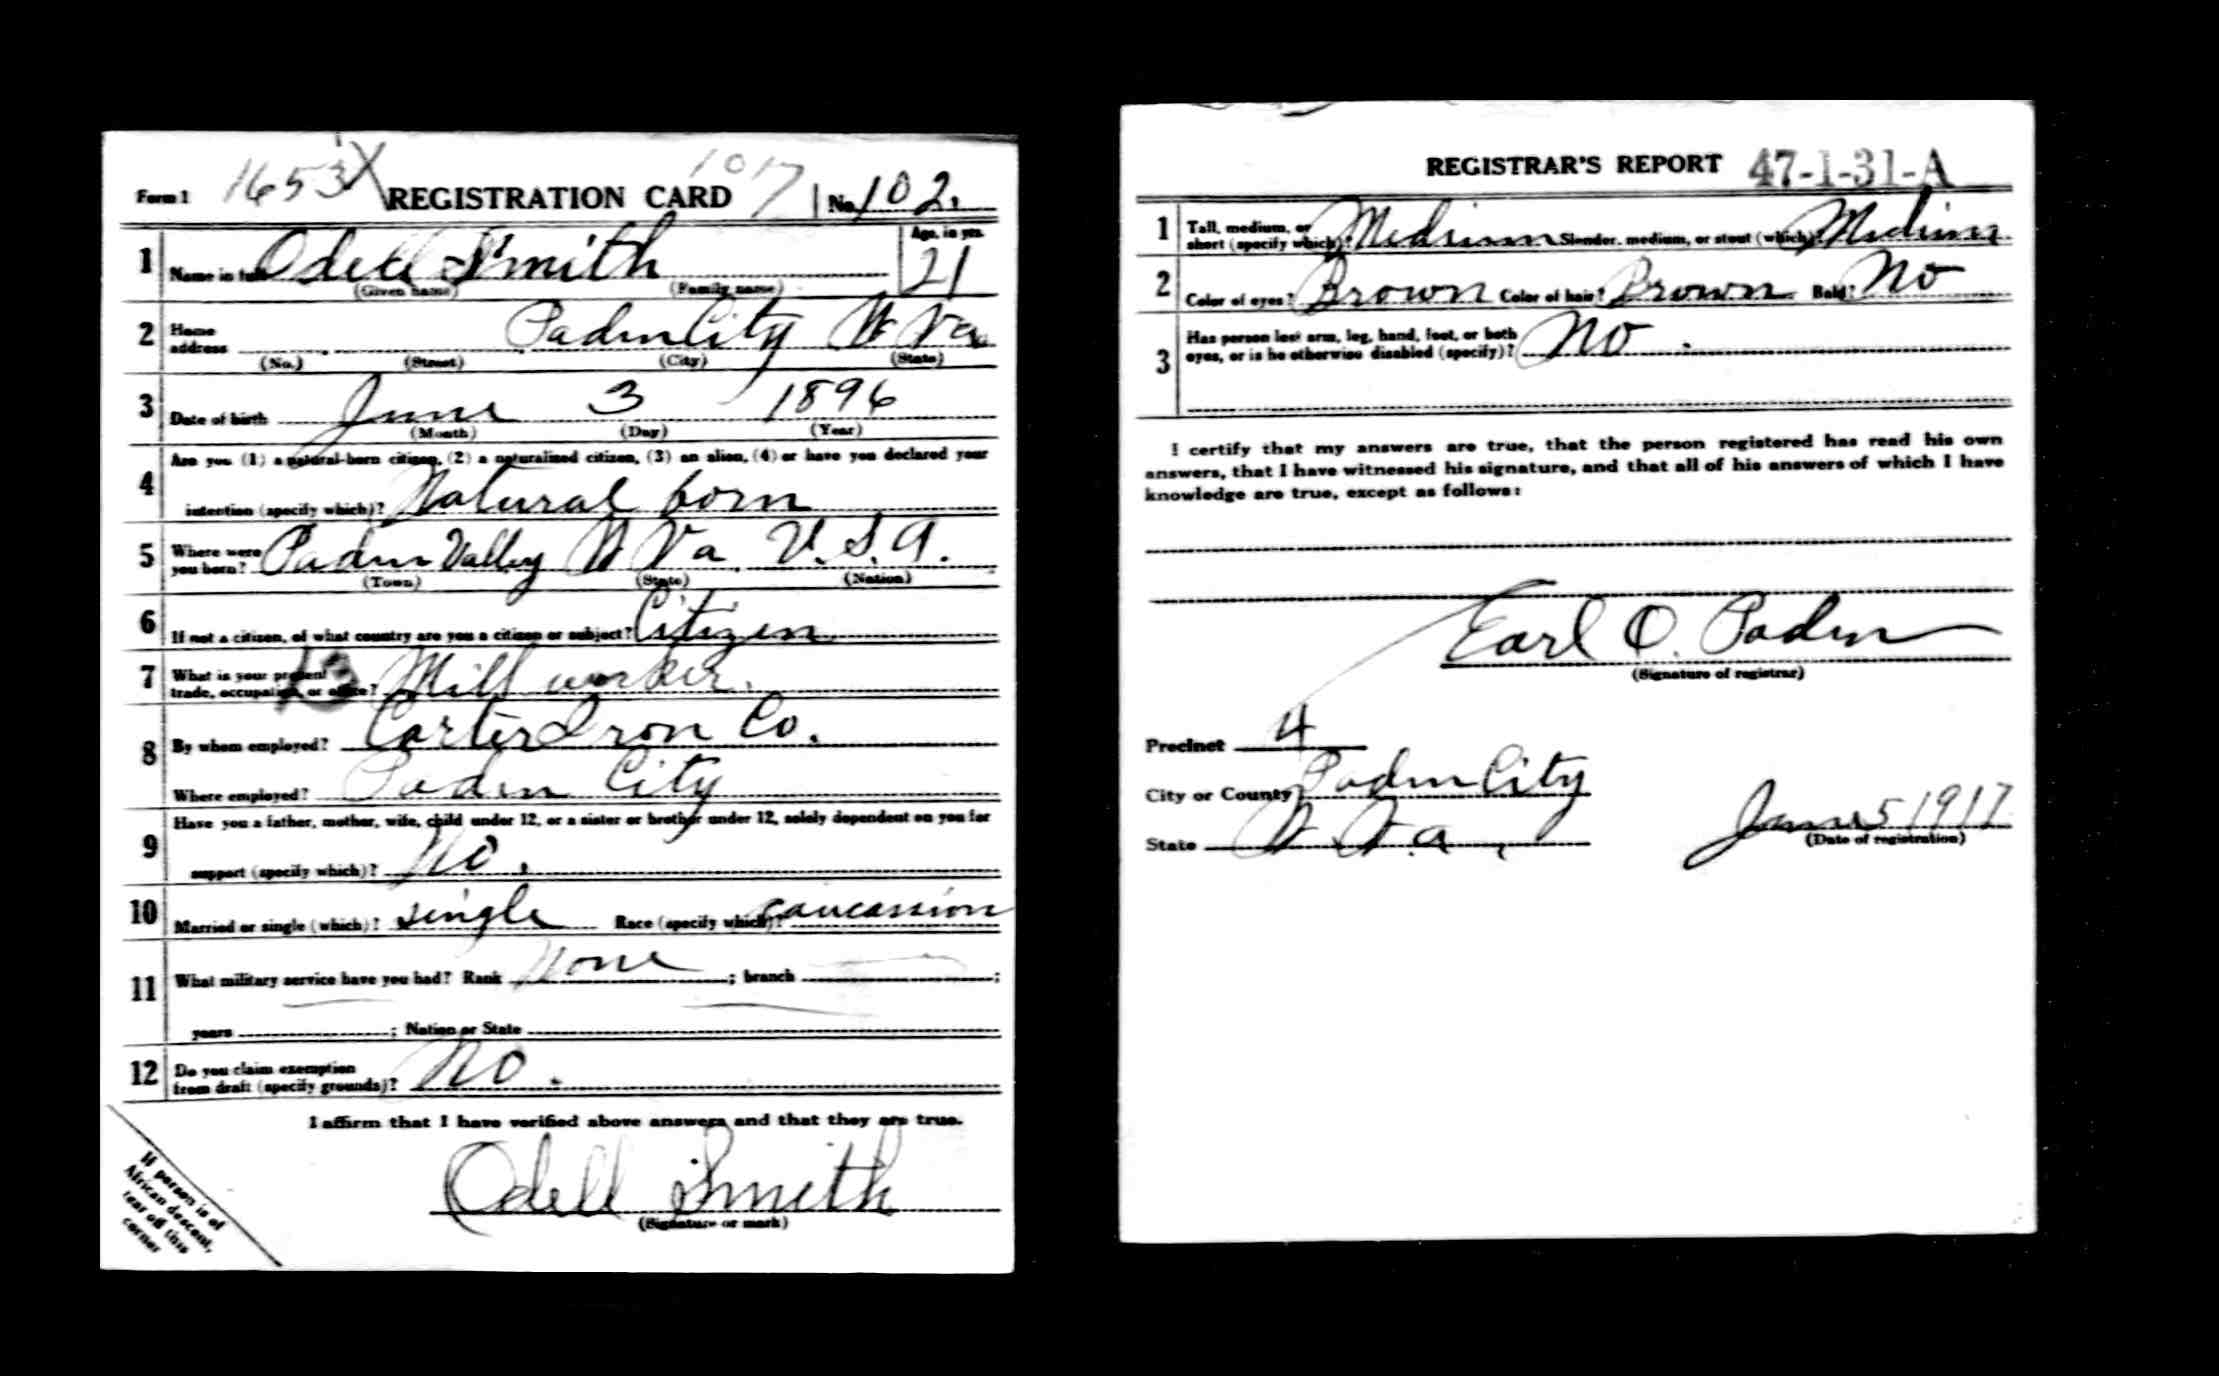 Form 1 1653 X REGISTRATION CARD 1017 No. 102.
1 Name in full Odell Smith Age, in yrs. 21
(Given name) (Family name)
2 Home address Paden City W Va
(No.) (Street) (City) (State)
3 Date of birth June 3 1896
(Month) (Day) (Year)
4 Are you (1) a natural-born citizen, (2) a naturalized citizen, (3) an alien, (4) or have you declared your
intention (specify which)? Natural born
5 Where were you born? Paden Valley W Va. U.S.A.
(Town) (State) (Nation)
6 If not a citizen, of what country are you a citizen or subject? Citizen
7 What is your present trade, occupation, or office? 13 Mill worker.
8 By whom employed? Carter Iron Co.
Where employed? Paden City
9 Have you a father, mother, wife, child under 12, or a sister or brother under 12, solely dependent on you for
support (specify which)? No.
10 Married or single (which)? single Race (specify which)? caucassion
11 What military service have you had? Rank None ; branch ;
years ; Nation or State
12 Do you claim exemption
from draft (specify grounds)? No.
I affirm that I have verified above answers and that they are true.
Odell Smith
(Signature or mark)
If person is of
African descent,
tear off this
corner
REGISTRAR'S REPORT 47-1-31-A
1 Tall, medium, or
short (specify which)? Medium Slender, medium, or stout (which)? Medium
2 Color of eyes? Brown Color of hair? Brown Bald? No
3 Has person lost arm, leg, hand, foot, or both
eyes, or is he otherwise disabled (specify)? No.
I certify that my answers are true, that the person registered has read his own
answers, that I have witnessed his signature, and that all of his answers of which I have
knowledge are true, except as follows:
Earl O. Paden
(Signature of registrar)
Precinct 4
City or County Paden City
State W. Va. June 5 1917
(Date of registration)